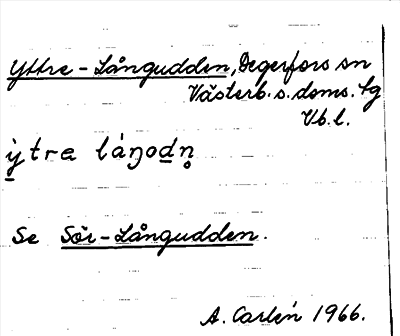 Yttre-Långudden, Degerfors sn
Västerb. s. doms. tg
Vb. l.
ỳ̠tra láŋod̲n̥
Se Sör-Långudden.
A. Carlén 1966.